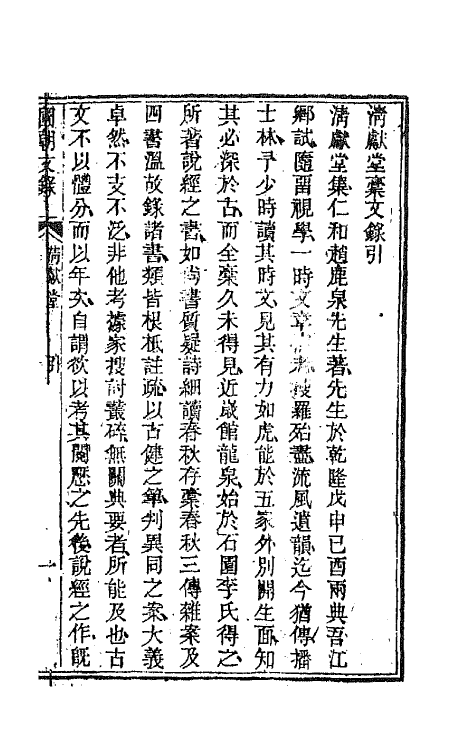 清獻堂稾文錄引
清獻堂集仁和趙鹿泉先生著先生於乾隆戊申己酉兩典吾江
鄉試隨畱視學一時文章搜羅殆盡流風遺韻迄今猶傳播
士林予少時讀其時文見其有力如虎能於五家外別開生面知
其必深於古而全稾久未得見近歲館龍泉始於石園李氏得之
所著說經之書如尚書質疑詩細讀春秋存稾春秋三傳雜案及
四書溫故錄諸書類皆根柢註疏以古健之筆判異同之案大義
卓然不支不泛非他考據家搜討叢碎無關典要者所能及也古
文不以體分而以年次自謂欲以考其閱歷之先後說經之作旣
國朝文錄
清獻堂
引
一